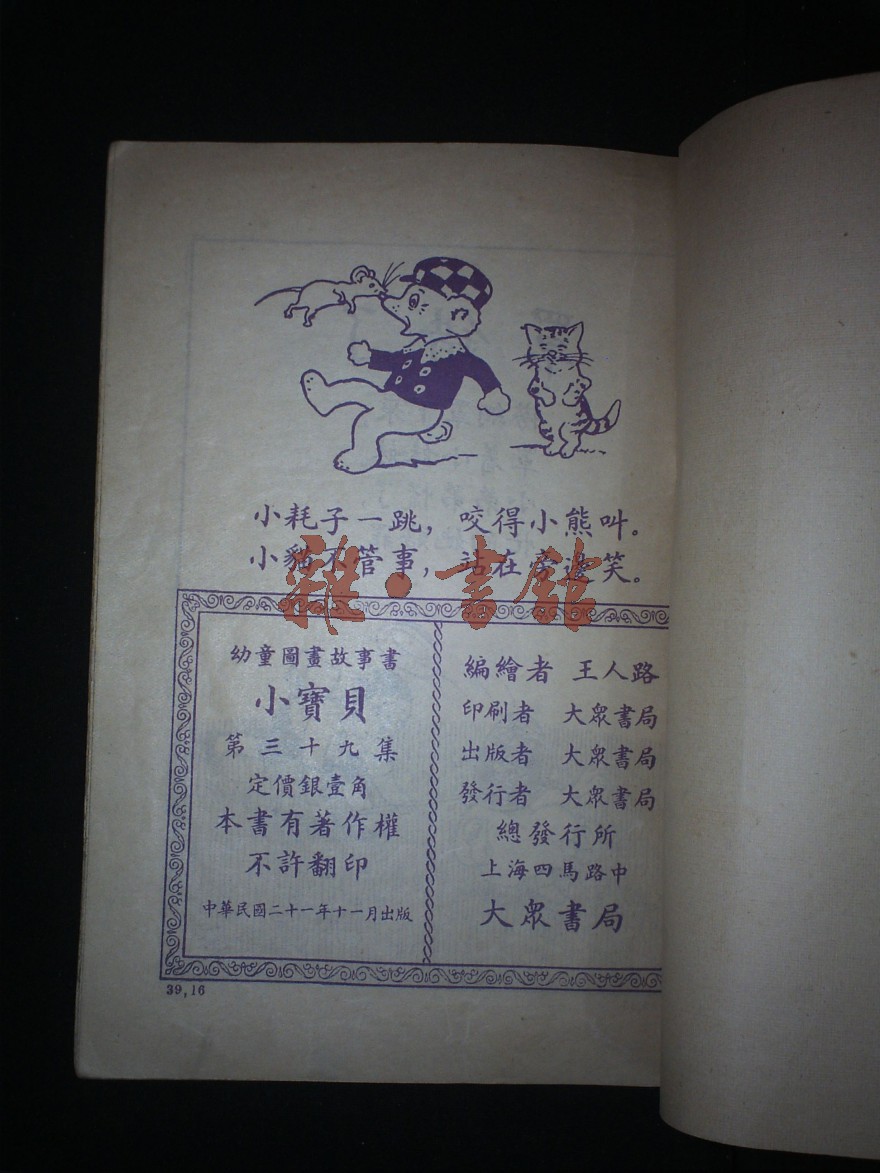 小耗子一跳，咬得小熊叫。
小貓不管事，站在旁邊笑。
雜·書館
幼童圖畫故事書
小寶貝
第三十九集
定價銀壹角
本書有著作權
不許翻印
中華民國二十一年十一月出版
編繪者 王人路
印刷者 大眾書局
出版者 大眾書局
發行者 大眾書局
總發行所
上海四馬路中
大眾書局
39,16